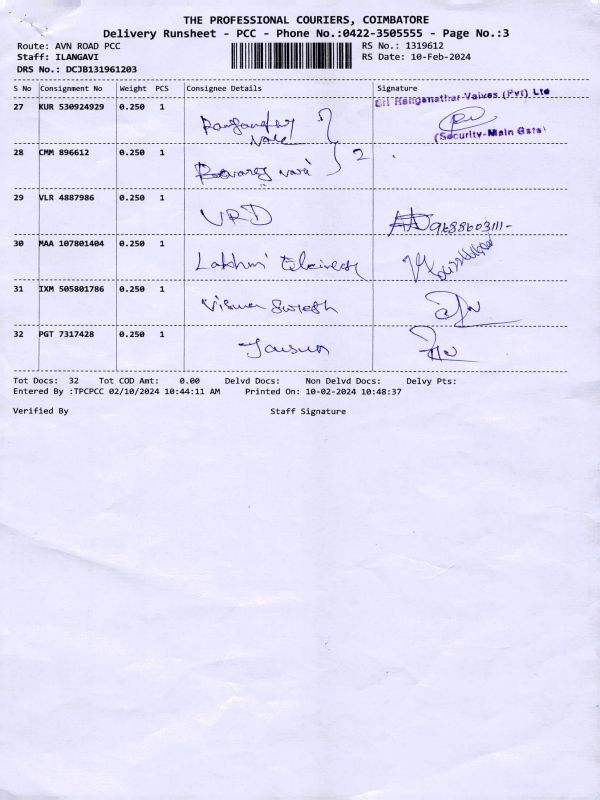 THE PROFESSIONAL COURIERS, COIMBATORE
Delivery Runsheet - PCC - Phone No.:0422-3505555 - Page No.:3
Route: AVN ROAD PCC
RS No.: 1319612
Staff: ILANGAVI
RS Date: 10-Feb-2024
DRS No.: DCJB131961203
S No Consignment No Weight PCS Consignee Details Signature
27 KUR 530924929 0.250 1
Sri Renganathar Valves (Pvt) Ltd
(Security-Main Gate)
28 CMM 896612 0.250 1
2
29 VLR 4887986 0.250 1
VRD
9688603111-
30 MAA 107801404 0.250 1
Lakshmi
31 IXM 505801786 0.250 1
Suresh
32 PGT 7317428 0.250 1
Tot Docs: 32 Tot COD Amt: 0.00 Delvd Docs: Non Delvd Docs: Delvy Pts:
Entered By :TPCPCC 02/10/2024 10:44:11 AM Printed On: 10-02-2024 10:48:37
Verified By Staff Signature